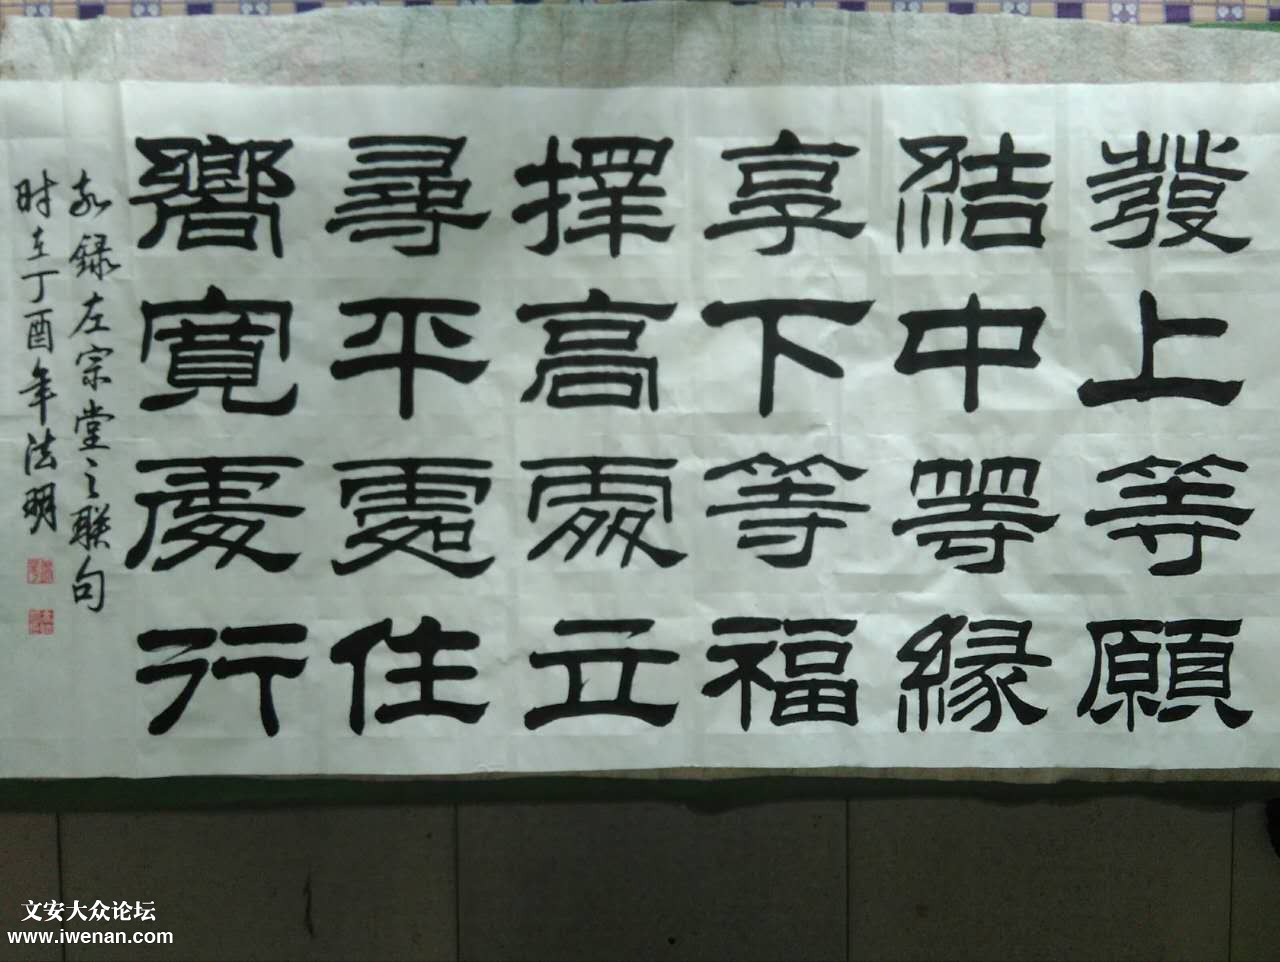 發上等願
結中等緣
享下等福
擇高處立
尋平處住
嚮寬處行
敬録左宗堂之联句
时在丁酉年法明
文安大众论坛
www.iwenan.com